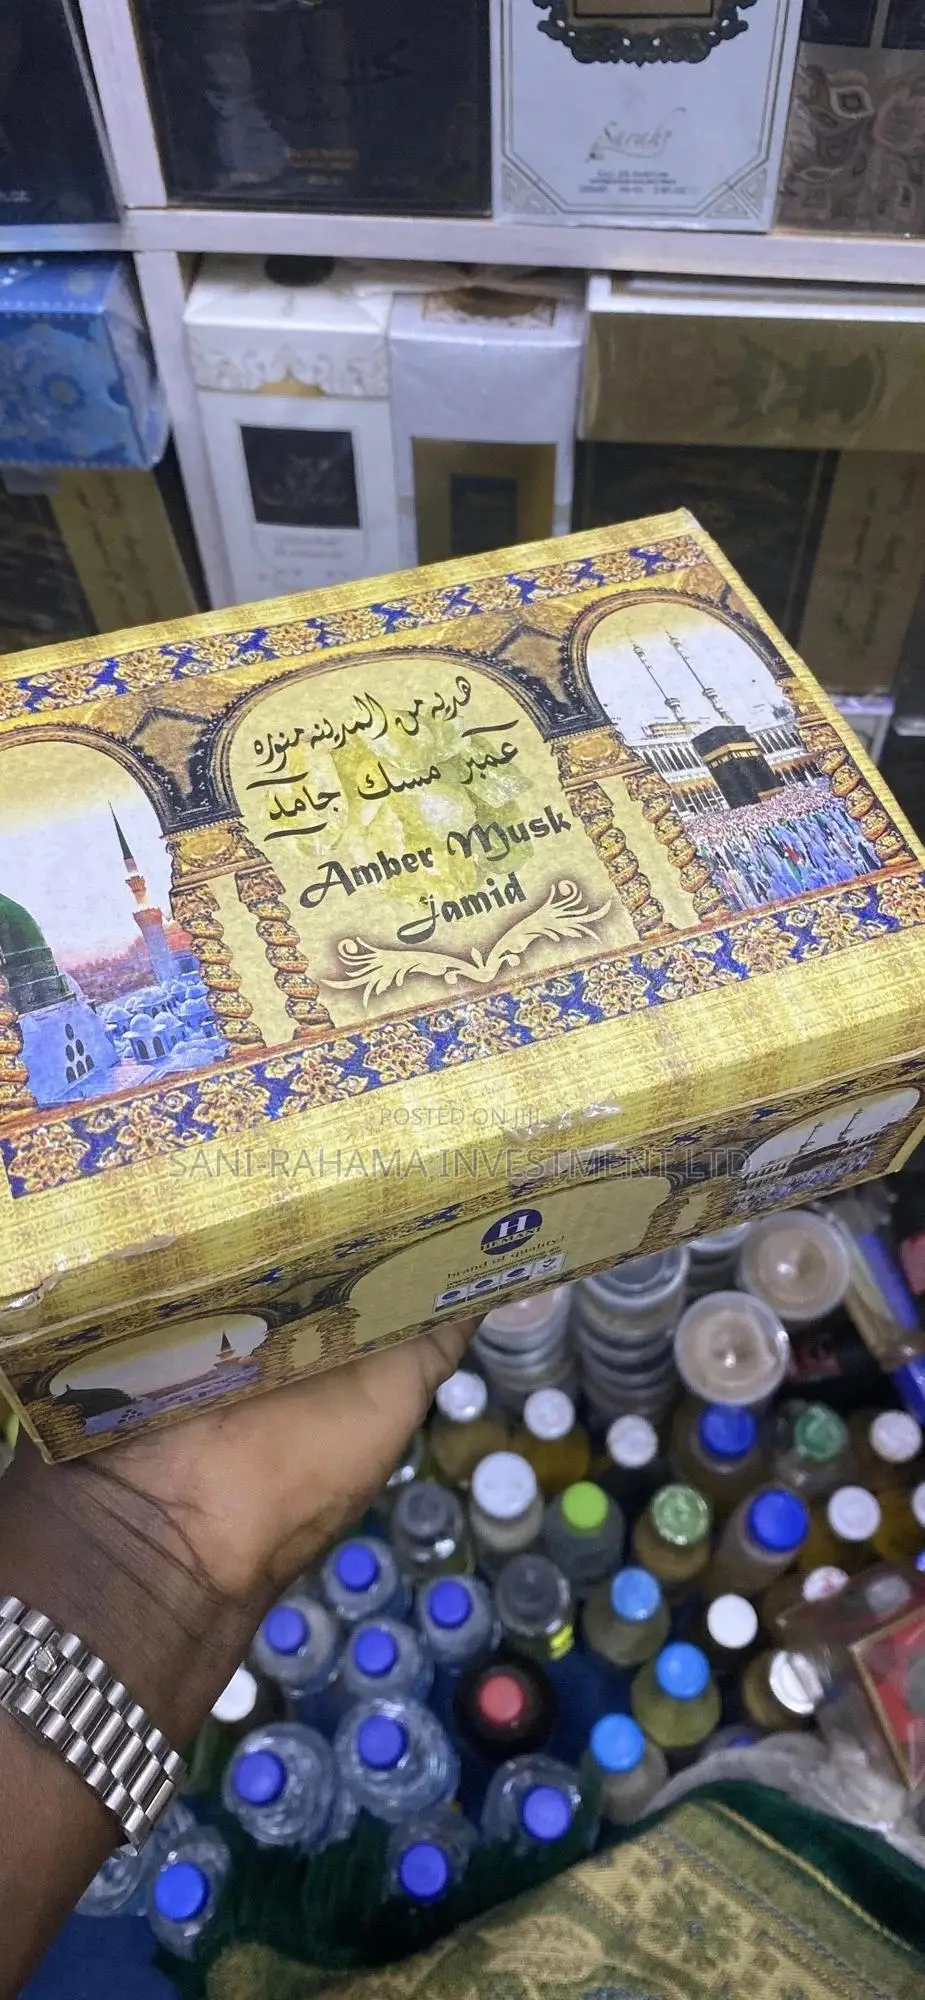 Sarahs
EAU DE PARFUM
هديه من المدينه منوره
عمبر مسك جامد
Amber Musk
Jamid
POSTED ON JIJI
SANI-RAHAMA INVESTMENT LTD
H
HEMANI
brand of quality!